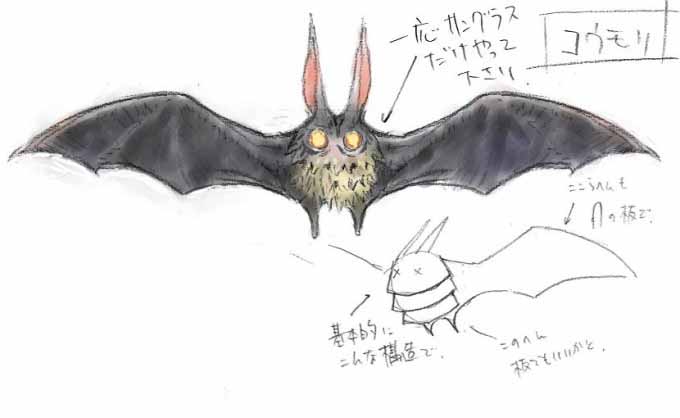 一応サングラス
だけやって
下さい。
コウモリ
ここらへんも
の板で。
基本的に
こんな構造で。
このへん
板でもいいかと。